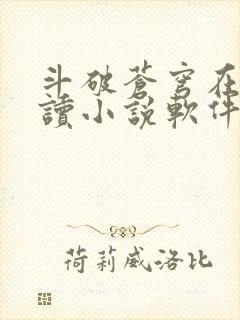 斗破蒼穹在
讀小說軟件
荷莉威洛比